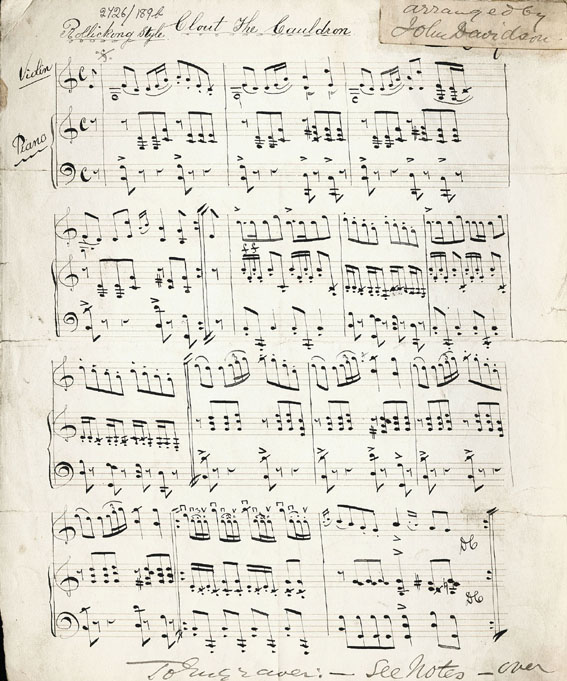 2726/1896
Rollicking Style Clout The Cauldron
arranged by
John Davidson
Violin
Piano
ff
DC
DC
To Engraver:- See Notes - over